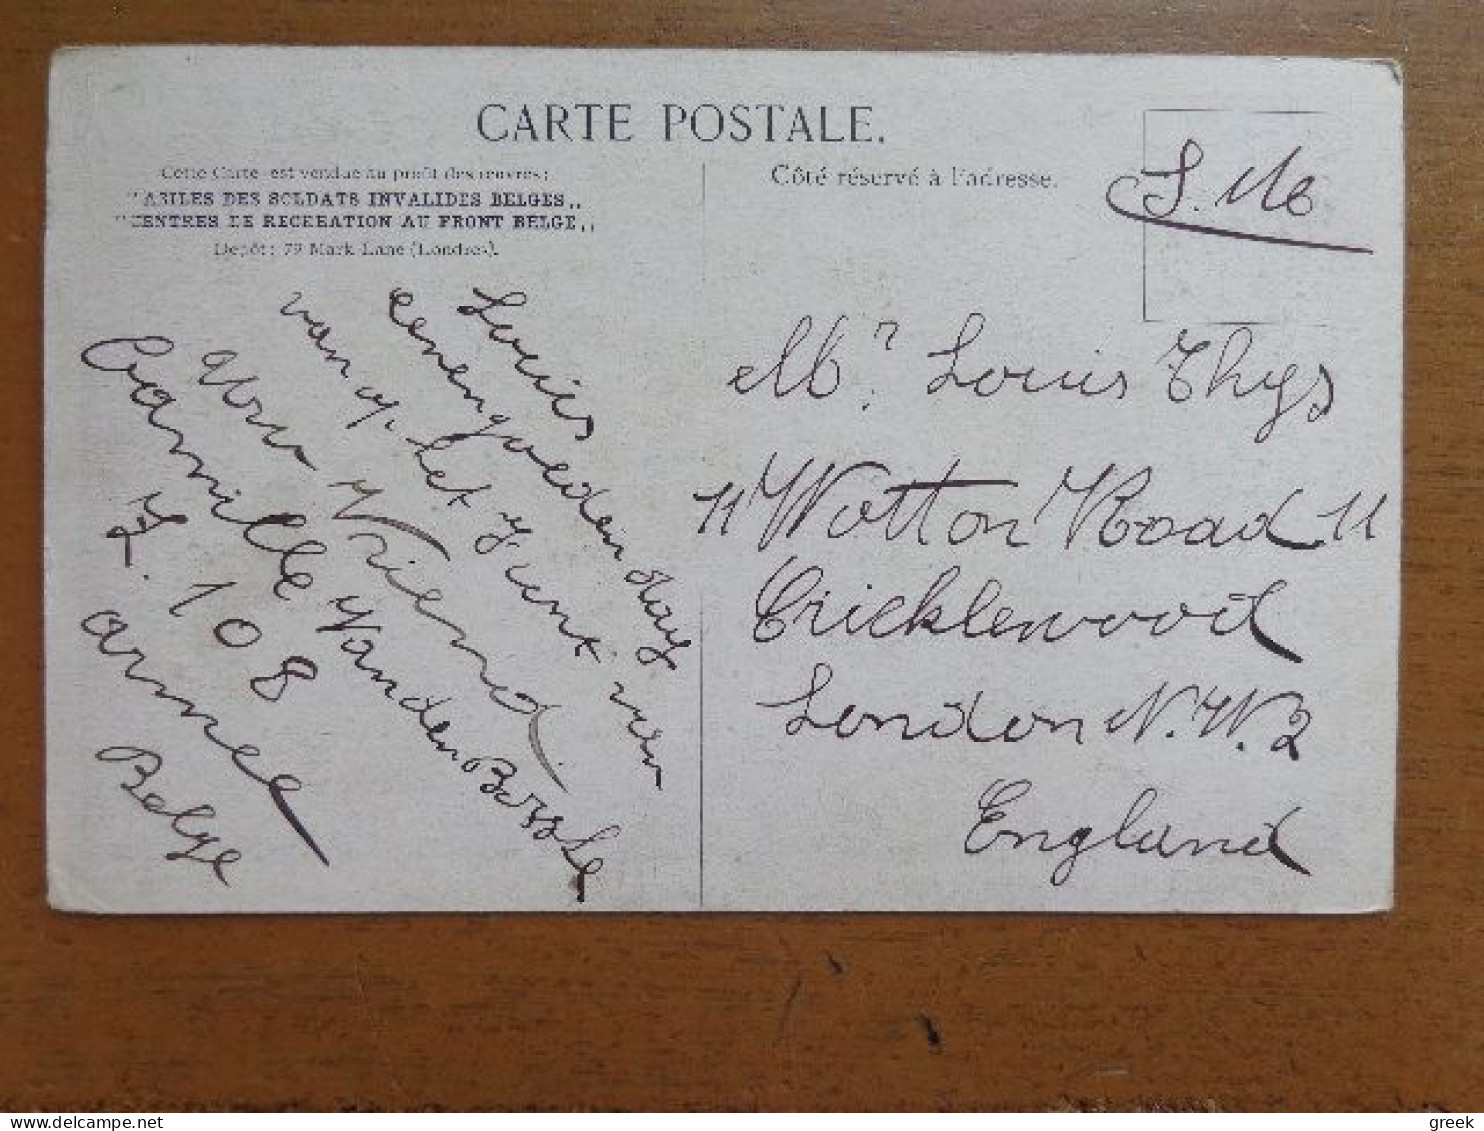 CARTE POSTALE.
Cette Carte est vendue au profit des œuvres:
"ASILES DES SOLDATS INVALIDES BELGES„
"CENTRES DE RECREATION AU FRONT BELGE„
Dépôt: 79 Mark Lane (Londres).
Côté réservé à l'adresse.
S. M.
Louis
eenen goeden dag
van op het front van
Uw Vriend
Camille Vanden Bossche
Z. 108
armee
Belge
Mr Louis Thys
11 Wotton Road 11
Cricklewood
London N.W.2
England
greek